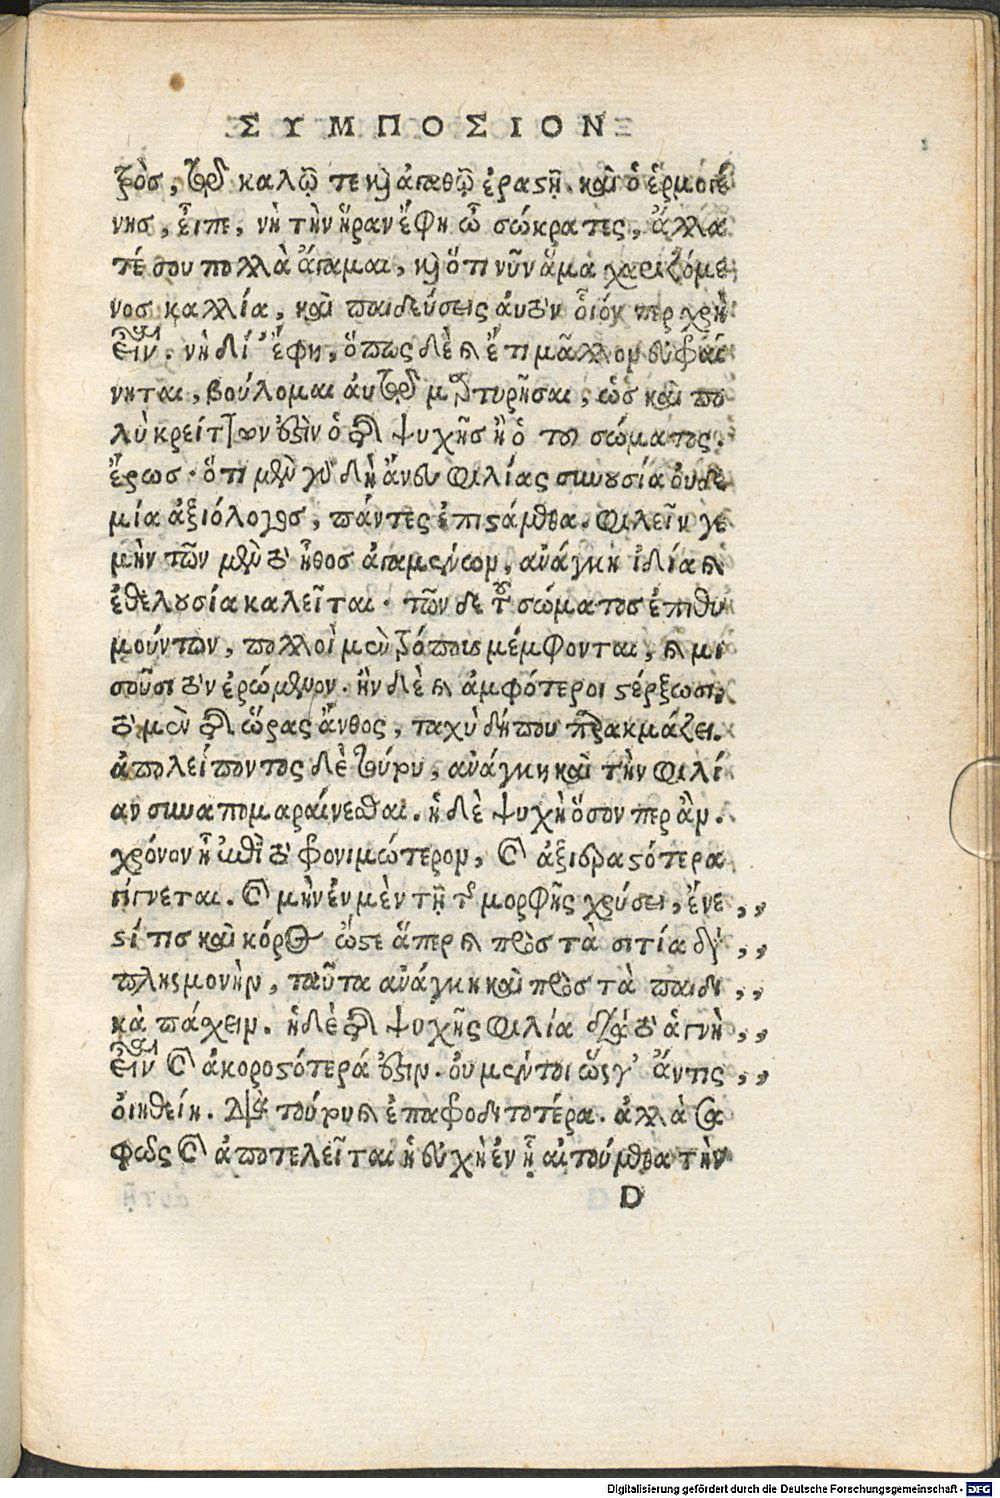 ΣΥΜΠΟΣΙΟΝ
ξὸς, τῷ καλῷ τε κὶ ἀγαθῷ ἐραστῇ. καὶ ὁ ἑρμογέ
νης, εἶπε, νὴ τὴν ἥραν ἔφη ὦ σώκρατες, ἄλλα
τέ σου πολλὰ ἄγαμαι, κὶ ὅτι νῦν ἅμα χαριζόμε
νος καλλία, καὶ παιδεύεις ἀυτὸν οἷόν περ χρὴ
εἶναι. νὴ δί' ἔφη, ὅπως δὲ καὶ ἔτι μᾶλλον ἐυφραί
νηται, βούλομαι ἀυτῷ μαρτυρῆσαι, ὡς καὶ πο
λὺ κρείττων ἐστὶν ὁ τῆς ψυχῆς ἢ ὁ τοῦ σώματος
ἔρως. ὅτι μὲν γὰρ δὴ ἄνευ φιλίας συνουσία ὀυδε
μία ἀξιόλογος, πάντες ἐπιστάμεθα. φιλεῖν γε
μὴν τῶν μὲν τὸ ἦθος ἀγαμένων, ἀνάγκη ἰδία καὶ
ἐθελουσία καλεῖται. τῶν δὲ τοῦ σώματος ἐπιθυ
μούντων, πολλοὶ μὲν τρόπους μέμφονται, καὶ μι
σοῦσι τὸν ἐρώμενον. ἢν δὲ καὶ ἀμφότεροι στέρξωσι,
τὸ μὲν τῆς ὥρας ἄνθος, ταχὺ δήπου παρακμάζει.
ἀπολείποντος δὲ τούτου, ἀνάγκη καὶ τὴν φιλί
αν συναπομαραίνεσθαι. ἡ δὲ ψυχὴ ὅσον περ ἂν
χρόνον ἦ ἐπὶ τὸ φρονιμώτερον, καὶ ἀξιεραστότερα
γίγνεται. καὶ μὴν ἐν μὲν τῇ τῆς μορφῆς χρήσει, ἔνε ,,
στί τις καὶ κόρος ὥστε ἅπερ καὶ πρὸς τὰ σιτία διὰ ,,
πλησμονὴν, ταῦτα ἀνάγκη καὶ πρὸς τὰ παιδι ,,
κὰ πάσχειν. ἡ δὲ τῆς ψυχῆς φιλία διὰ τὸ ἁγνὴ ,,
εἶναι καὶ ἀκοροστότερά ἐστιν. ὀυ μέντοι ὥς γ' ἄντις ,,
ὀιηθείη. διὰ τοῦτο καὶ ἐπαφροδιτοτέρα. ἀλλὰ σα
φῶς καὶ ἀποτελεῖται ἡ ἐυχὴ ἐν ᾗ αἰτούμεθα τὴν
D